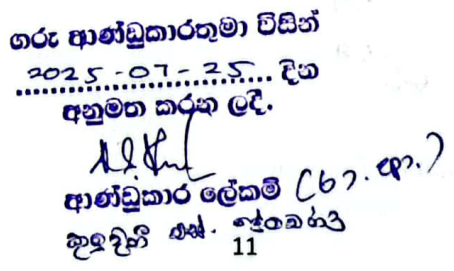 ගරු ආණ්ඩුකාරතුමා විසින්
2025-07-25 දින
අනුමත කරන ලදී.
ආණ්ඩුකාර ලේකම් (වැ.ආ.)
එස්.
11